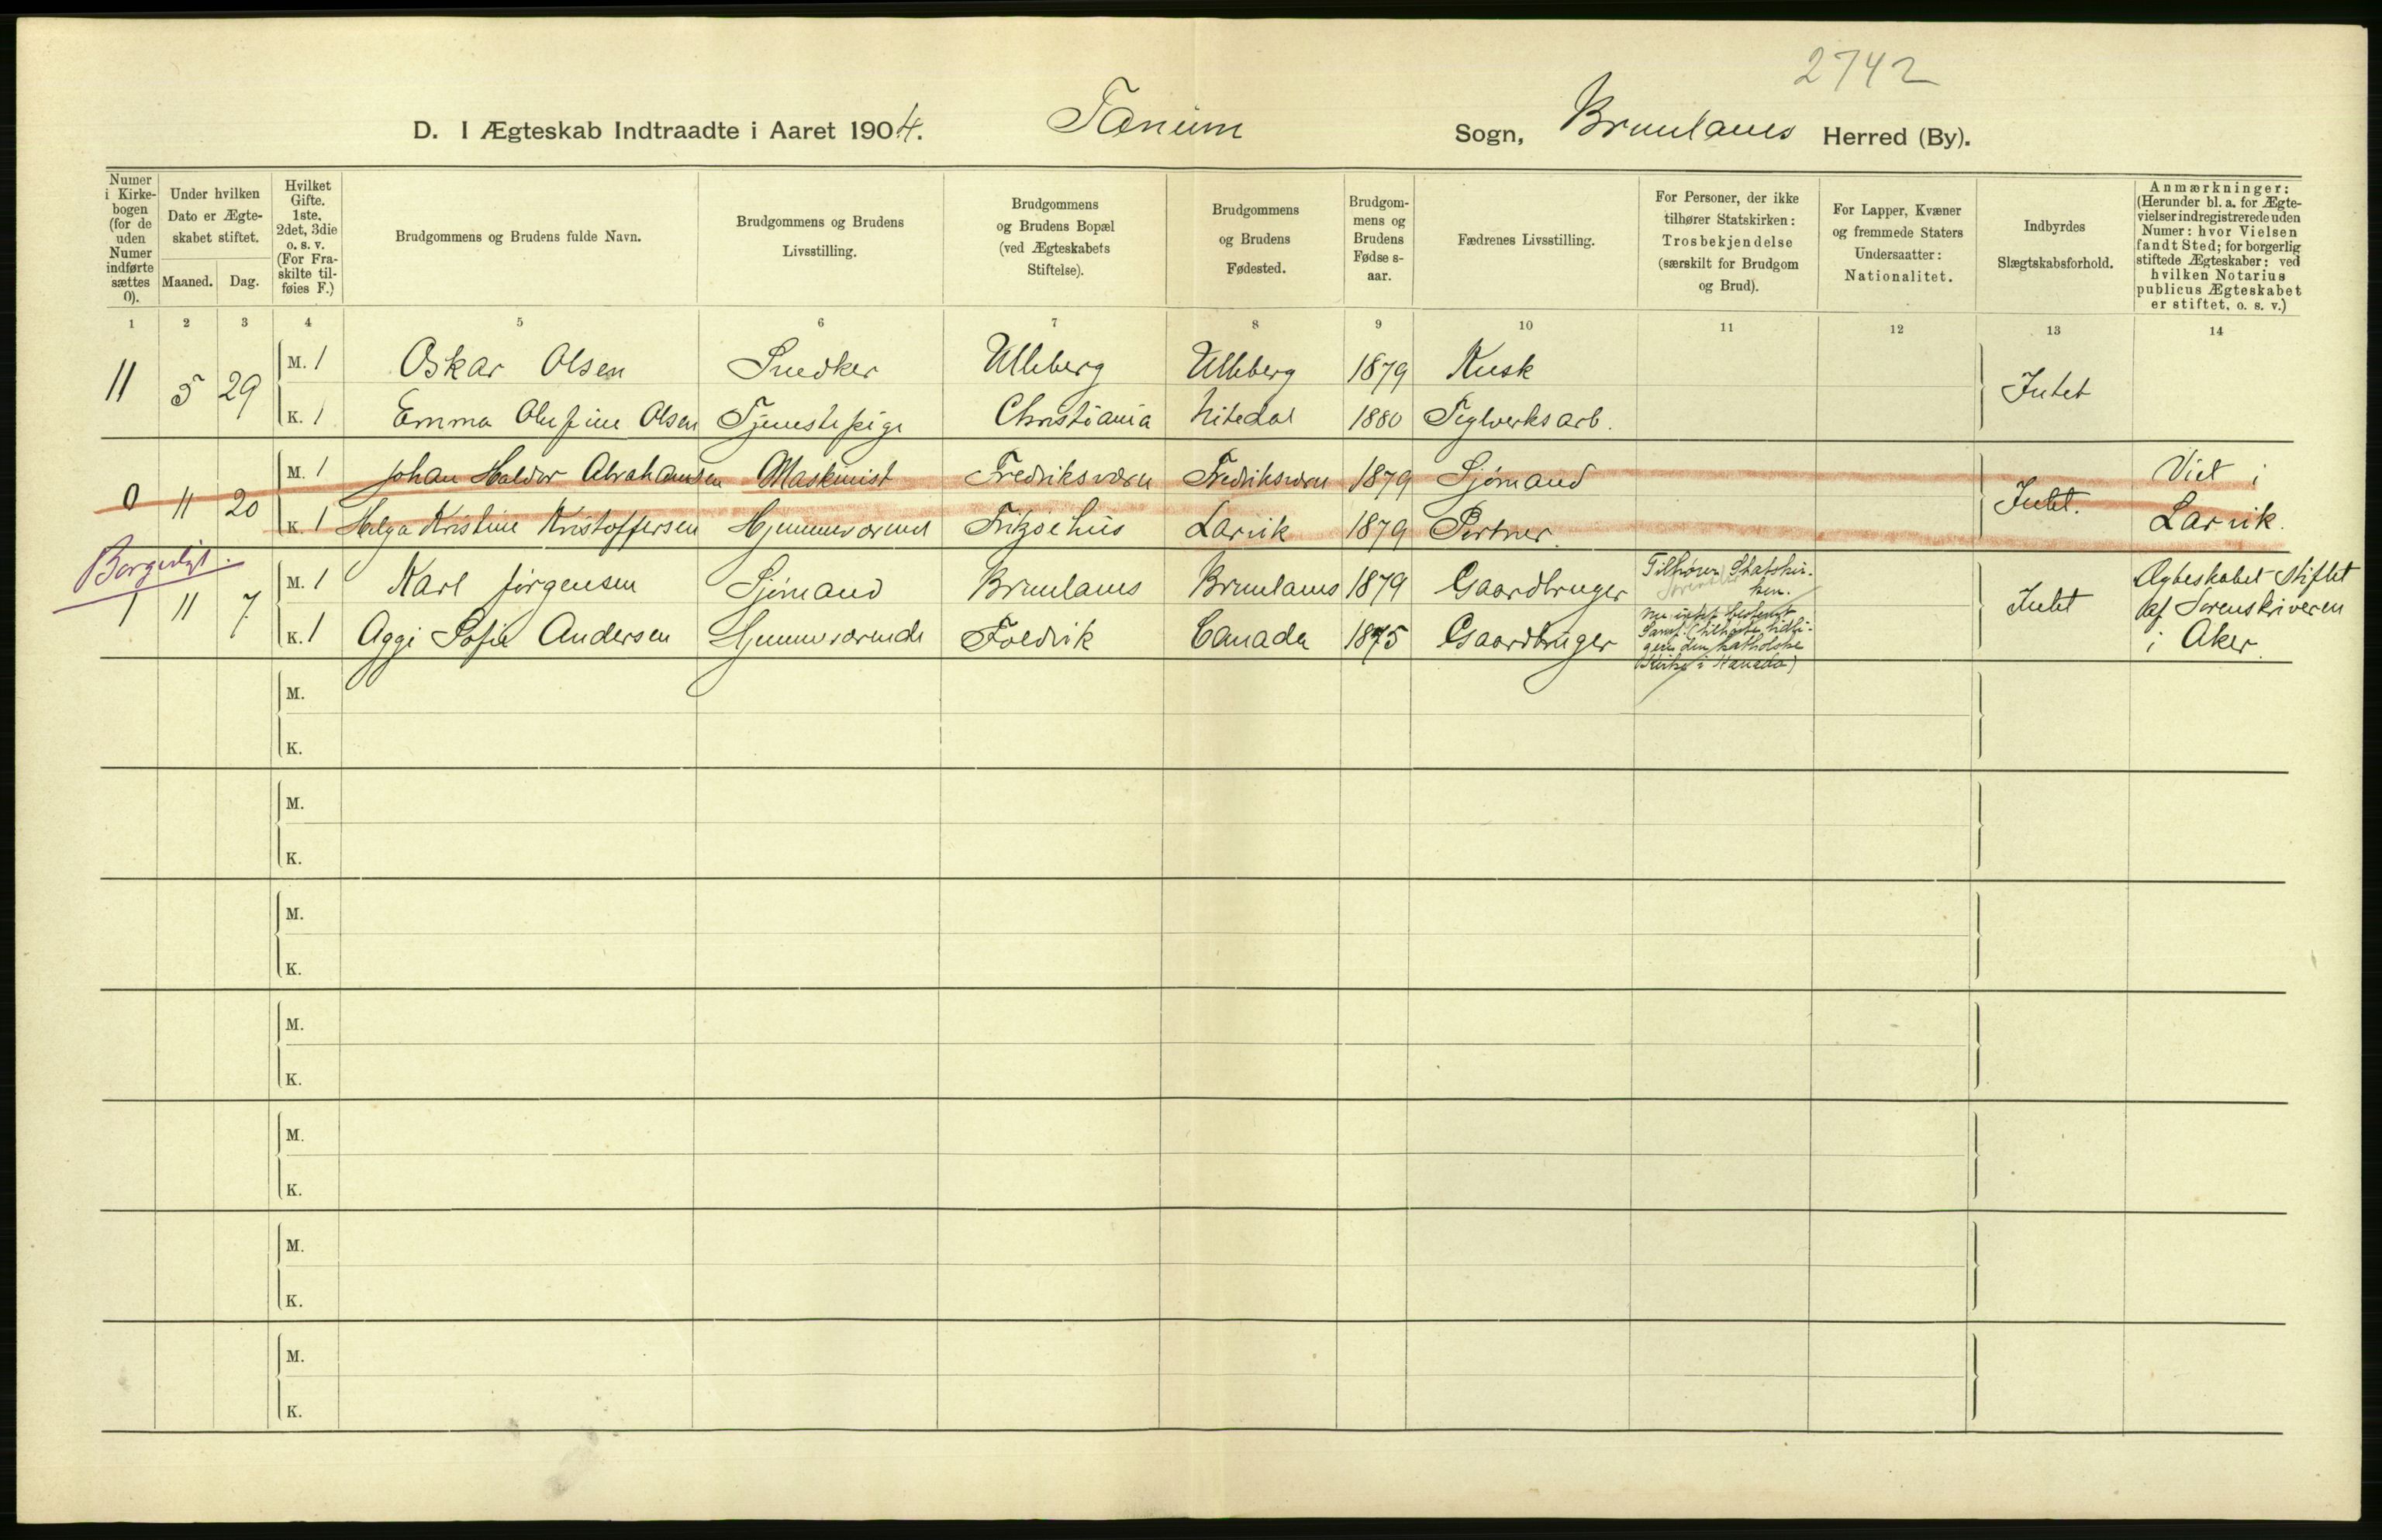 2742
D. I Ægteskab Indtraadte i Aaret 1904. Tanum Sogn, Brunlanes Herred (By).
Numer i Kirkebogen (for de uden Numer indførte sættes 0).
Under hvilken Dato er Ægteskabet stiftet.
Maaned. Dag.
Hvilket Gifte. 1ste, 2det, 3die o. s. v. (For Fraskilte tilføies F.)
Brudgommens og Brudens fulde Navn.
Brudgommens og Brudens Livsstilling.
Brudgommens og Brudens Bopæl (ved Ægteskabets Stiftelse).
Brudgommens og Brudens Fødested.
Brudgommens og Brudens Fødse s-aar.
Fædrenes Livsstilling.
For Personer, der ikke tilhører Statskirken: Trosbekjendelse (særskilt for Brudgom og Brud).
For Lapper, Kvæner og fremmede Staters Undersaatter: Nationalitet.
Indbyrdes Slægtskabsforhold.
Anmærkninger: (Herunder bl. a. for Ægtevielser indregistrerede uden Numer: hvor Vielsen fandt Sted; for borgerlig stiftede Ægteskaber: ved hvilken Notarius publicus Ægteskabet er stiftet, o. s. v.)
1 2 3 4 5 6 7 8 9 10 11 12 13 14
11 5 29 M. 1 Oskar Olsen Snedker Ulleberg Ulleberg 1879 Kusk Intet
K. 1 Emma Olufine Olsen Tjenestepige Christiania Nitedal 1880 Teglverksarb.
0 11 20 M. 1 Johan Haldor Abrahamsen Maskinist Fredriksværn Fredriksværn 1879 Sjømand Intet. Viet i
K. 1 Helga Kristine Kristoffersen Hjemmeværend Fritzøehus Larvik 1879 Portner. Larvik.
Borgerligt.
1 11 7. M. 1 Karl Jørgensen Sjømand Brunlanes Brunlanes 1879 Gaardbruger Tilhører Statskirken. Intet Ægteskabet stiftet af Sorenskriveren
K. 1 Aggi Sofie Andersen Hjemmeværende Foldvik Canada 1875 Gaardbruger nu intet bestemt Samf. (tilhørte tidligere den katholske Kirke i Kanada) i Aker.
M.
K.
M.
K.
M.
K.
M.
K.
M.
K.
M.
K.
M.
K.